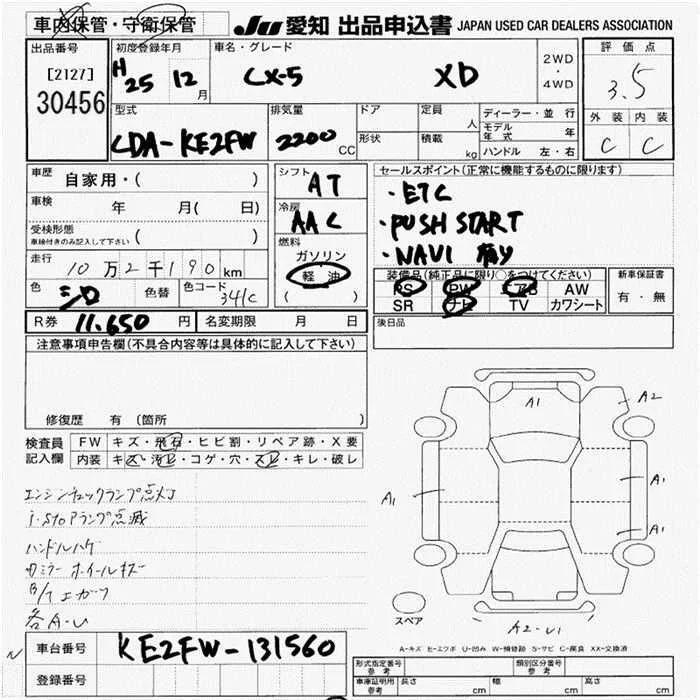 車内保管・守衛保管
JU 愛知 出品申込書 JAPAN USED CAR DEALERS ASSOCIATION
出品番号
[2127]
30456
初度登録年月
H25 12 月
車名・グレード
CX-5 XD
2WD
・
4WD
評価点
3.5
外装 内装
C C
型式
LDA-KE2FW
排気量
2200 CC
ドア
形状
定員 人
積載 kg
ディーラー・並行
モデル年式 年
ハンドル 左・右
車歴 自家用・( )
車検 年 月( 日)
受検形態
車検付きのみ記入して下さい ( )
走行 10万2千190 km
色 シロ 色替 色コード 34K
シフト
AT
冷房
AAC
燃料
ガソリン
軽油
( )
R券 11.650 円 名変期限 月 日
セールスポイント(正常に機能するものに限ります)
・ETC
・PUSH START
・NAVI
装備品(純正品に限り○をつけてください)
PS PW AB AW
SR ナビ TV カワシート
新車保証書
有・無
後日品
注意事項申告欄(不具合内容等は具体的に記入して下さい)
修復歴 有 (箇所 )
検査員記入欄
FW キズ・飛石・ヒビ割・リペア跡・X要
内装 キズ・汚レ・コゲ・穴・スレ・キレ・破レ
エンジンチェックランプ点灯
i-stopランプ点滅
ハンドルハゲ
ホイールキズ
各A・U
A1
A2
A1
A1
A1
A2-U1
スペア
A-キズ E-エクボ U-凹み W-補修跡 S-サビ C-腐食 XX-交換済
車台番号 KE2FW-131560
登録番号
形式指定番号 参考
類別区分番号 参考
車庫証明用参考 長さ cm 幅 cm 高さ cm